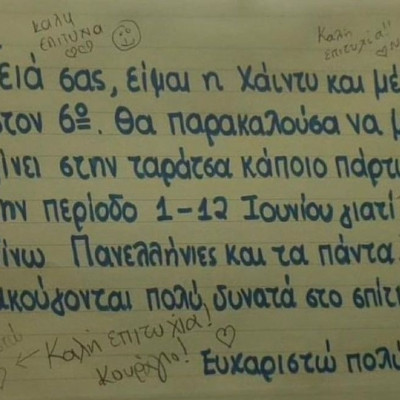 καλη
επιτυχια
Καλή
επιτυχία!!
ειά σας, είμαι η Χάιντυ και μέ
στον 6º. Θα παρακαλούσα να μ
ίνει στην ταράτσα κάποιο πάρτυ
ην περίοδο 1-12 Ιουνίου γιατί
ίνω Πανελλήνιες και τα πάντα
ακούγονται πολύ δυνατά στο σπίτι
Καλή επιτυχία!
Κουράγιο!
Ευχαριστώ πολύ